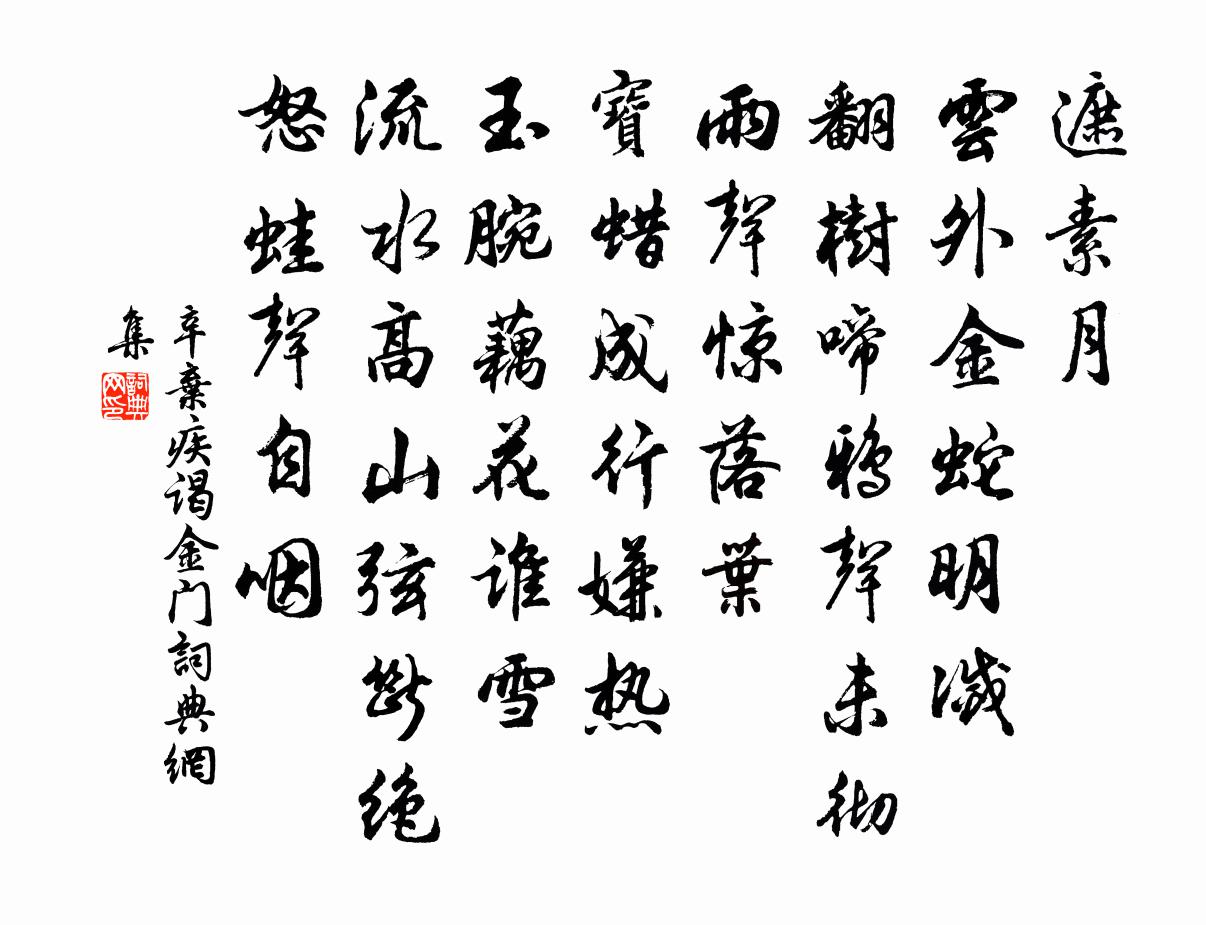 遮素月
雲外金蛇明滅
翻樹啼鴉聲未彻
雨聲惊落葉
寶蜡成行嫌热
玉腕藕花谁雪
流水高山弦斷絶
怒蛙聲自咽
辛棄疾谒金门詞典網
集
詞典网印